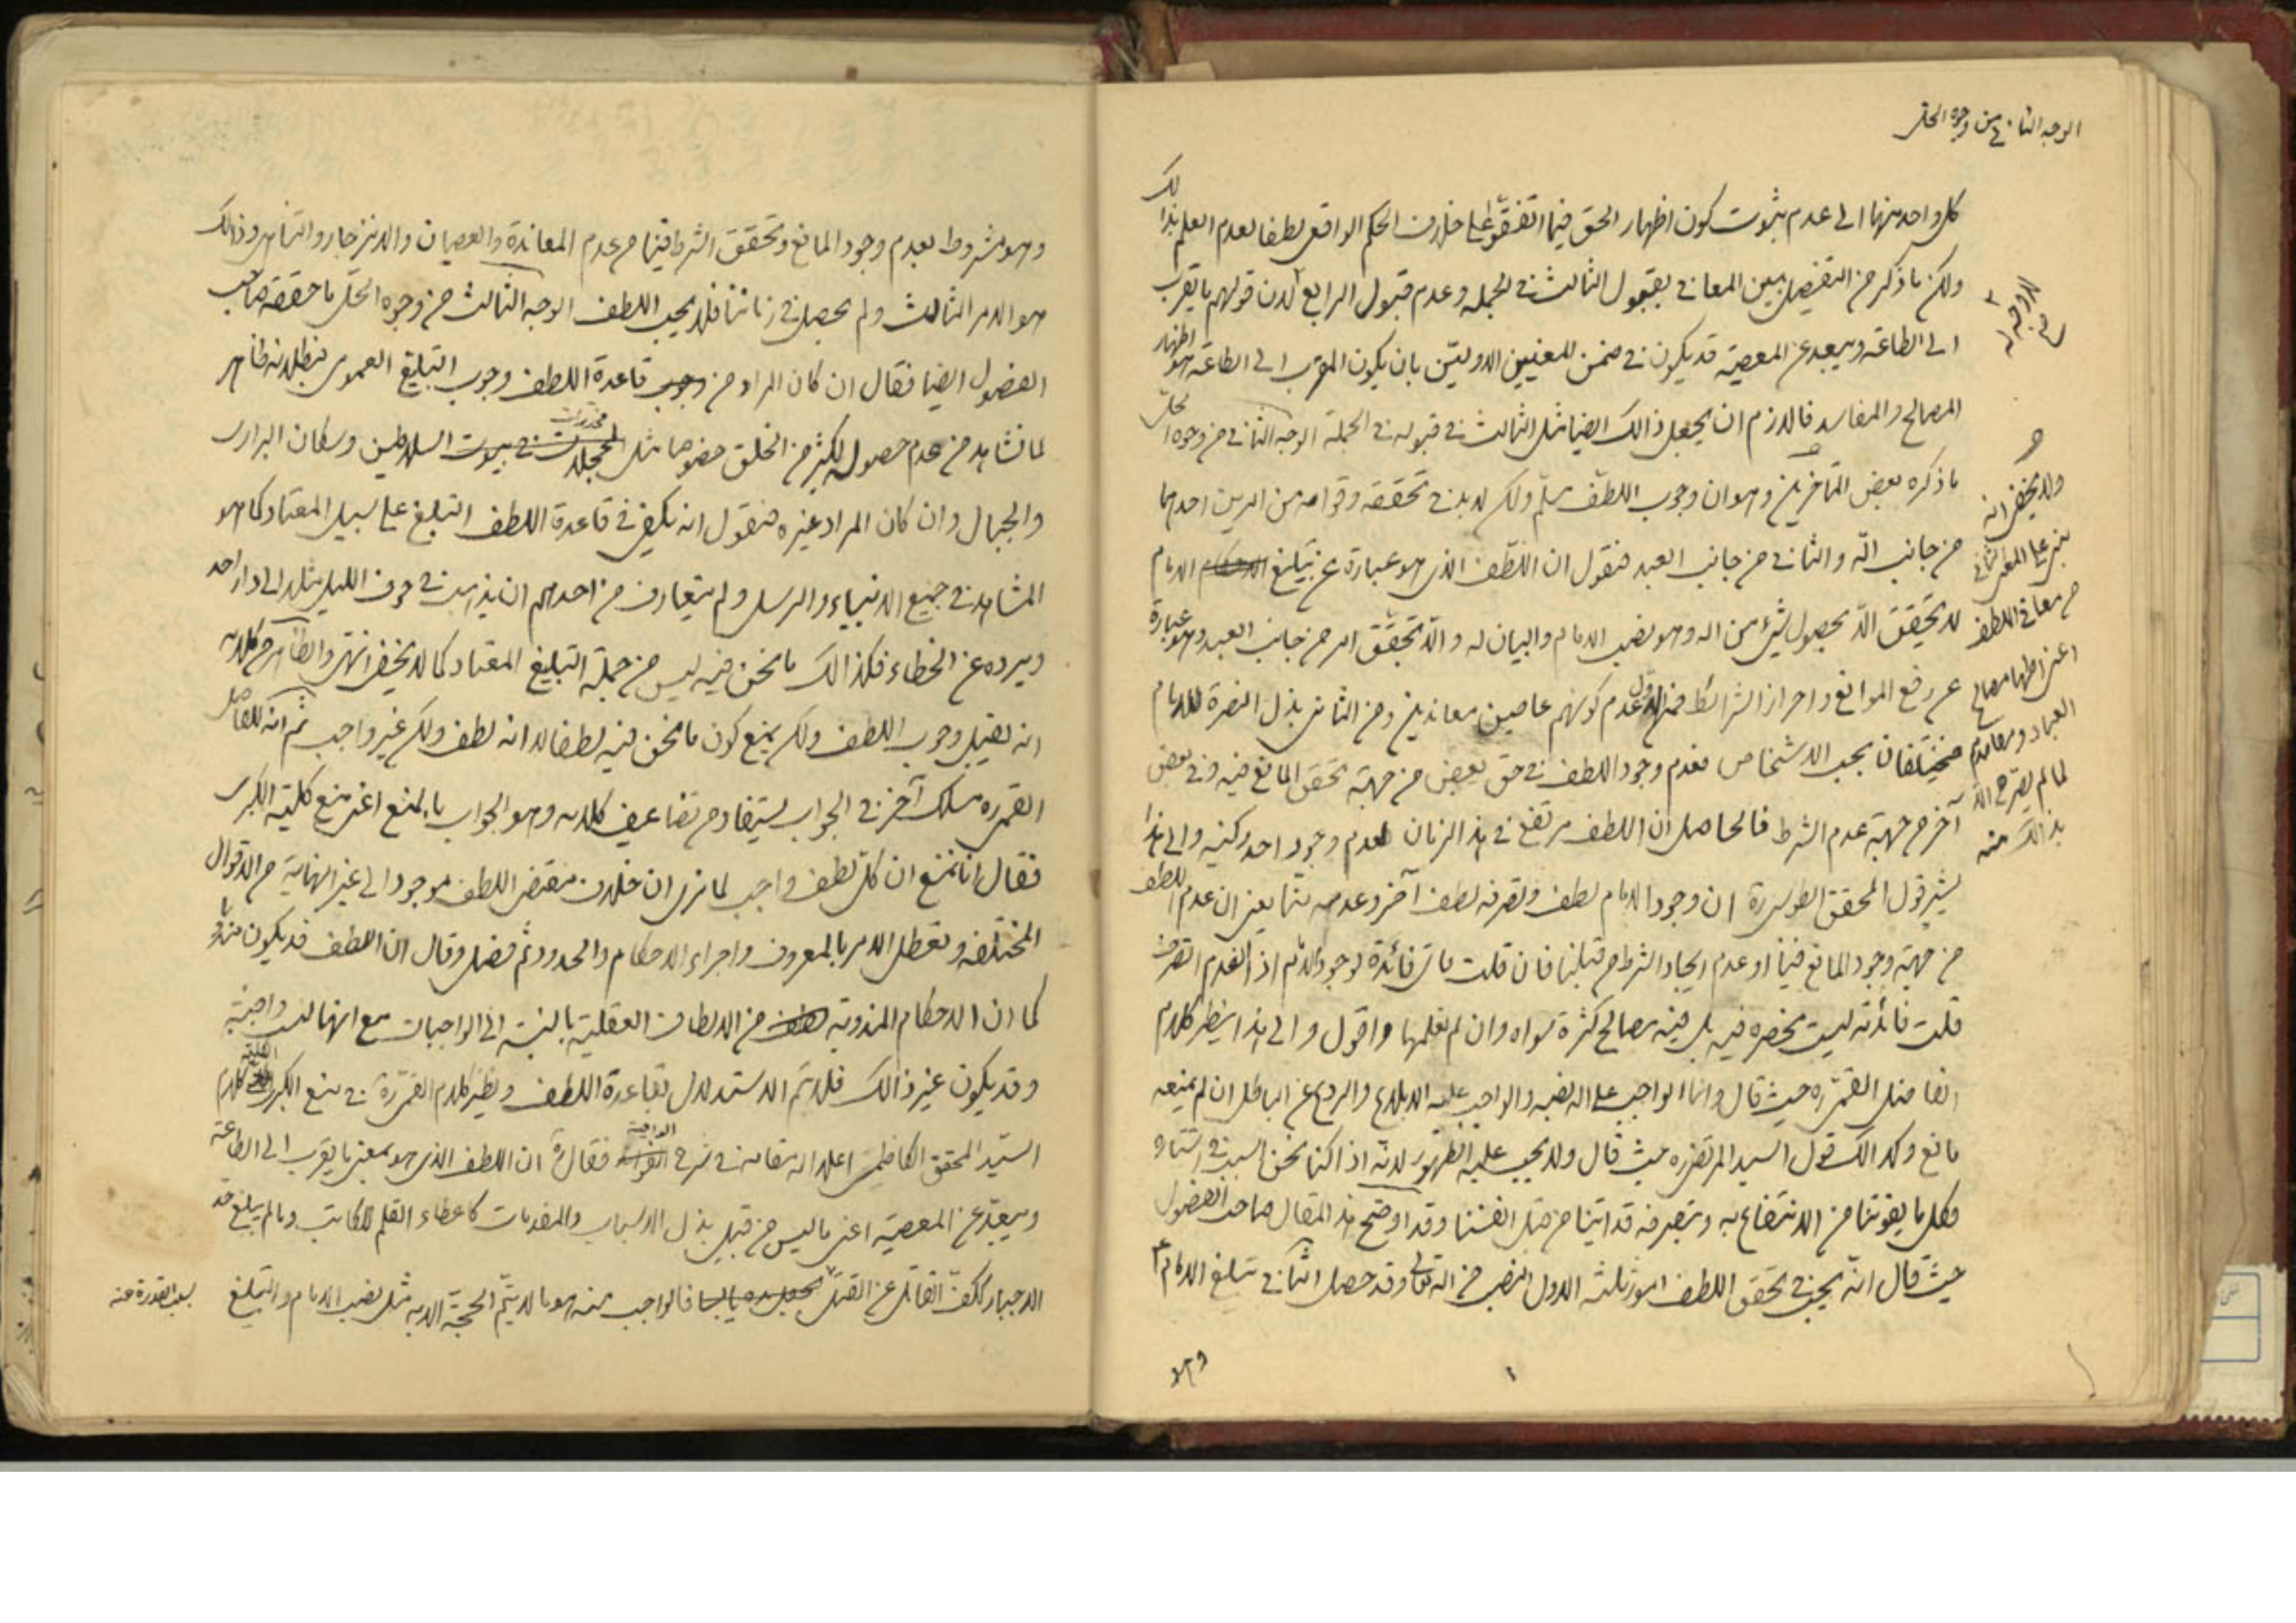 الوجه الثاني من وجوه الحل
كل واحد منها الى عدم ثبوت كون اظهار الحق فيما اتفقوا على خلاف الحكم الواقعي لطفا لعدم العلم بذلك
ولكن ما ذكر من التفصيل بين المعاني بقبول الثالث في الجمله وعدم قبول الرابع لان قولهم ما يقرب
الى الطاعة ويبعد عن المعصية قد يكون في ضمن المعنيين الاوليين بان يكون المقرب الى الطاعة هو اظهار
المصالح والمفاسد فاللازم ان يجعل ذالك ايضا مثل الثالث في قبوله في الجملة الوجه الثاني من وجوه الحل
ما ذكره بعض المتأخرين وهو ان وجوب اللطف مسلم ولكن لا بد في تحققه وقوامه من امرين احدهما
من جانب الله والثاني من جانب العبد فنقول ان اللطف الذي هو عبارة عن تبليغ الامام
لا يتحقق الا بحصول شيء من الله وهو نصب الامام والبيان له والا تحقق امر من جانب العبد وهو عبارة
عن رفع الموانع واحراز الشرائط فمن الاول عدم كونهم عاصين معاندين ومن الثاني بذل النصرة للامام
مختلفان بحسب الاشخاص فعدم وجود اللطف في حق بعض من جهة تحقق المانع فيه وفي بعض
آخر من جهة عدم الشرط فالحاصل ان اللطف مرتفع في هذا الزمان لعدم وجود احد ركنيه والى هذا
يشير قول المحقق الطوسي ره ان وجود الامام لطف وتصرفه لطف آخر وعدمه منا يعني ان عدم اللطف
من جهة وجود المانع فينا او عدم ايجاد الشرط من قبلنا فان قلت فائدة لوجود الامام اذا انعدم التصرف
قلت فائدته ليست منحصره فيه بل فيه مصالح كثرة سواه وان لم نعلمها واقول والى هذا ينظر كلام
الفاضل القمي ره حيث قال وانما الواجب على الله نصبه والواجب عليه الابلاغ والردع عن الباطل ان لم يمنعه
مانع وكذالك قول السيد المرتضى ره حيث قال ولا يجب عليه الظهور لانه اذا كنا نحن السبب في استتاره
فكل ما يفوتنا من الانتفاع به وبتصرفه قد اتينا من قبل انفسنا وقد اوضح هذا المقال صاحب الفصول
حيث قال انه يجب في تحقق اللطف امور ثلثه الاول النصب من الله تعالى وقد حصل الثاني تبليغ الامام ع
وهو
ولا يخفى انه
على المعنى الثاني
من معاني اللطف
اعنى اظهار مصالح
العباد ومفاسدهم
لما لم يصرح الله
بذالك منه
وهو مشروط بعدم وجود المانع وتحقق الشرط فينا من عدم المعاندة والعصيان والانزجار والتناهى وذالك
هو الامر الثالث ولم يحصل في زماننا فلا يجب اللطف الوجه الثالث من وجوه الحل ما حققه صاحب
الفصول ايضا فقال ان كان المراد من قاعدة اللطف وجوب التبليغ العمومى فبطلانه ظاهر
لما نشاهد من عدم حصوله لكثير من الخلق خصوصا مثل مخدرات في بيوت السلاطين وسكان البرارى
والجبال وان كان المراد غيره فنقول انه يكفى في قاعدة اللطف التبليغ على سبيل المعتاد كما هو
المشاهد في جميع الانبياء والرسل ولم يتعارف من احدهم ان يذهب في جوف الليل مثلا الى دار احد
ويرده عن الخطاء فكذالك ما نحن فيه ليس من جملة التبليغ المعتاد كما لا يخفى انتهى والظاهر من كلامه
انه يقبل وجوب اللطف ولكن يمنع كون ما نحن فيه لطفا لا انه لطف ولكن غير واجب ثم انه للفاضل
القمى ره مسلك آخر في الجواب يستفاد من تضاعيف كلامه وهو الجواب بالمنع اعنى منع كلية الكبرى
فقال انا نمنع ان كل لطف واجب لما نرى ان خلاف مقتضى اللطف موجود الى غير النهاية من الاقوال
المختلفه وتعطل الامر بالمعروف واجراء الاحكام والحدود ثم فصل وقال ان اللطف قد يكون مندوبا
كما ان الاحكام المندوبة من الالطاف العقلية بالنسبة الى الواجبات مع انها ليست واجبة
وقد يكون غير ذالك فلا يتم الاستدلال بقاعدة اللطف ونظير كلام القمى ره في منع الكبرى كلام
السيد المحقق الكاظمى اعلى الله مقامه في شرح الوافية فقال ره ان اللطف الذى هو بمعنى ما يقرب الى الطاعة
ويبعد عن المعصية اعنى ما ليس من قبيل بذل الاسباب والمقدمات كاعطاء القلم للكاتب وما لم يبلغ حد
الاجبار ككف القاتل عن القتل فالواجب منه هو ما لا يتم الحجة الا به مثل نصب الامام والتبليغ
بسلب القدرة عنه